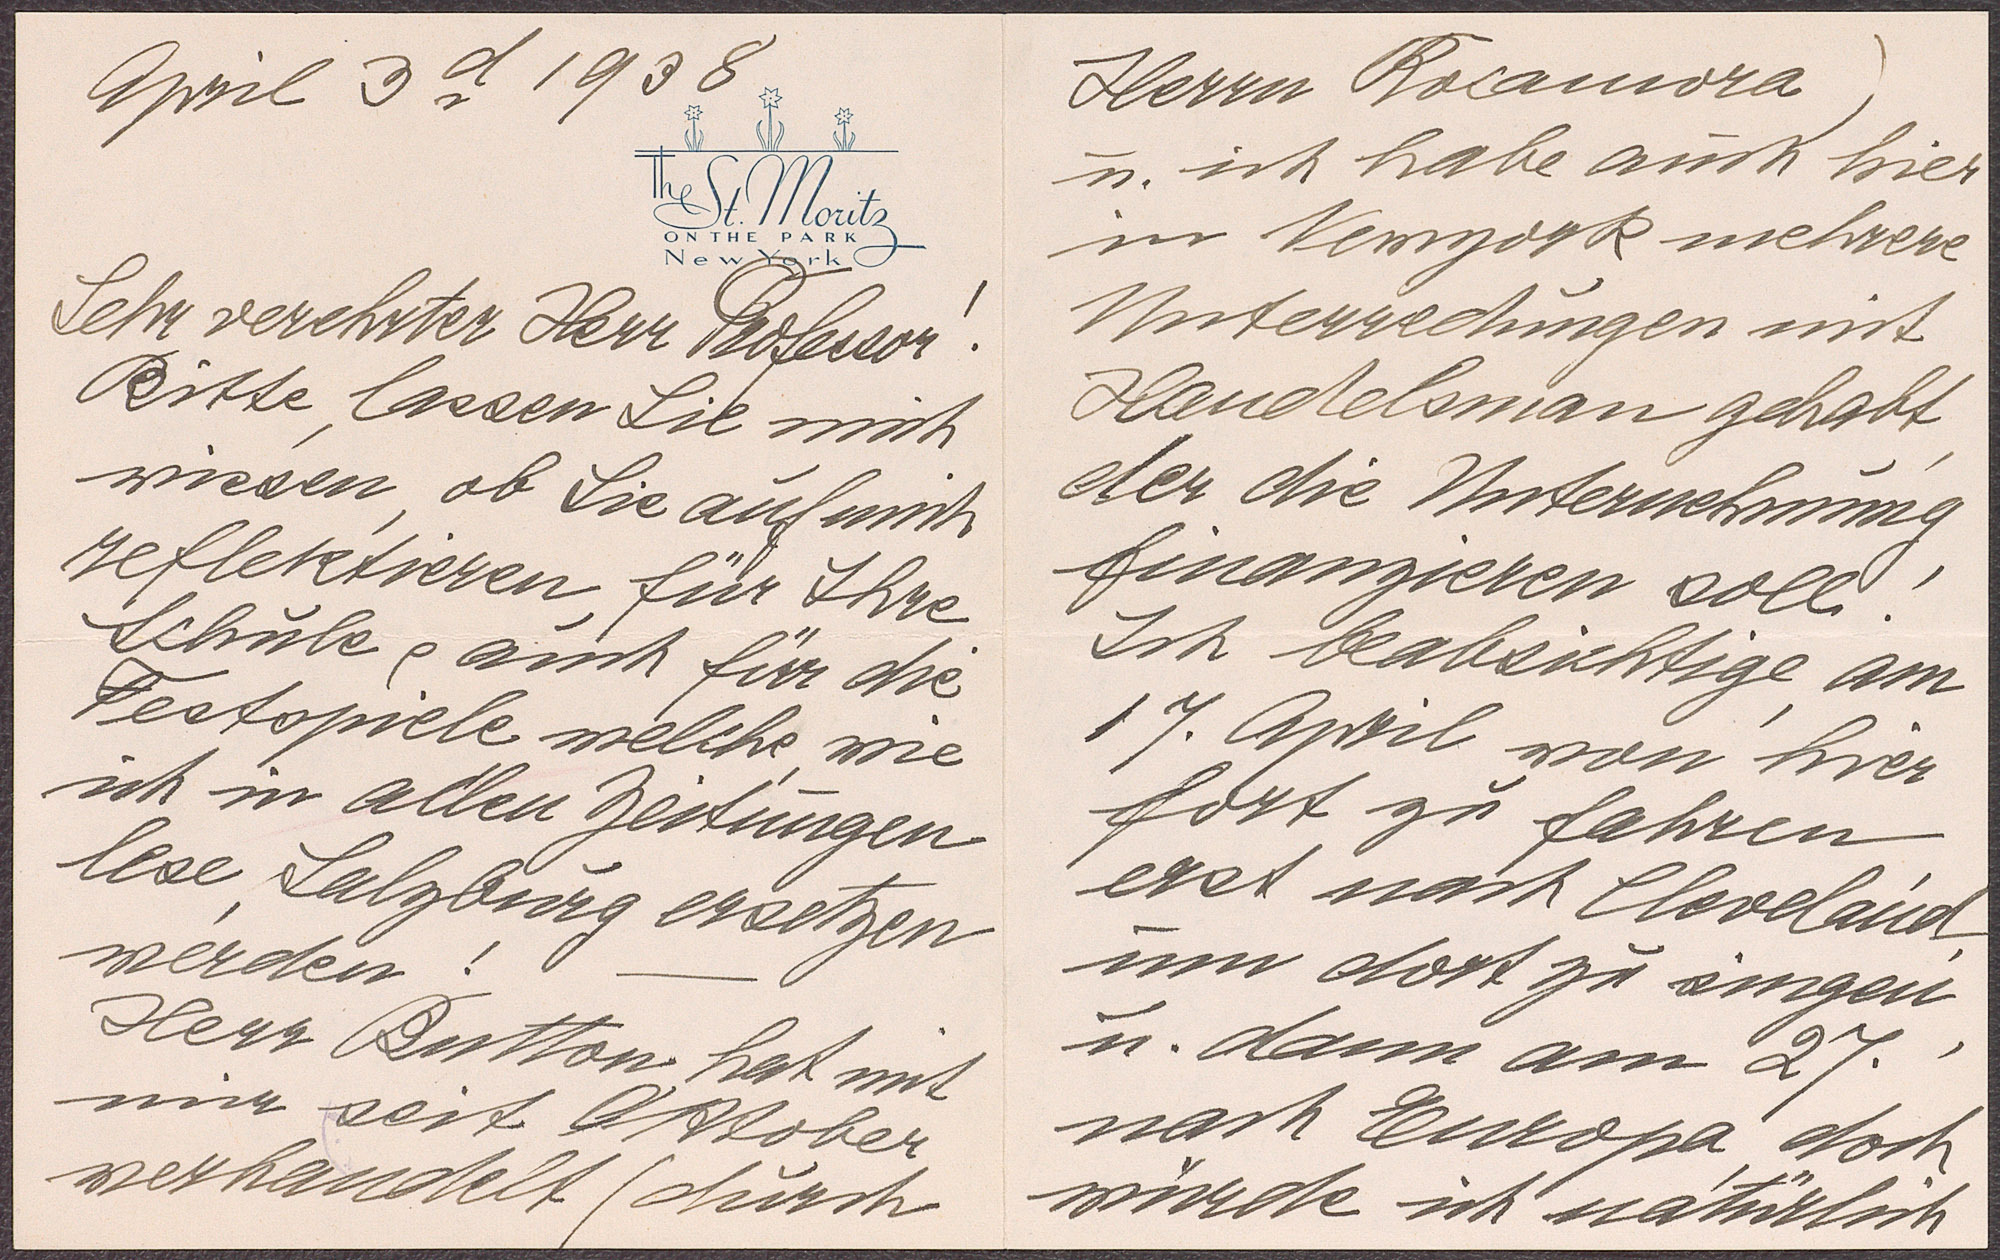 April 3d 1938
The St. Moritz
ON THE PARK
New York
Sehr verehrter Herr Professor!
Bitte, lassen Sie mich
wissen, ob Sie auf mich
reflektieren, für Ihre
Schule, auch für die
Festspiele welche, wie
ich in allen Zeitungen
lese, Salzburg ersetzen
werden! —
Herr Button hat mit
mir seit Oktober
verhandelt (durch
Herrn Rocamora)
u. ich habe auch hier
in Newyork mehrere
Unterredungen mit
Handelsman gehabt,
der die Unternehmung
finanzieren soll!
Ich beabsichtige, am
17. April von hier
fort zu fahren
erst nach Cleveland,
um dort zu singen,
u. dann am 27.
nach Europa, doch
würde ich natürlich